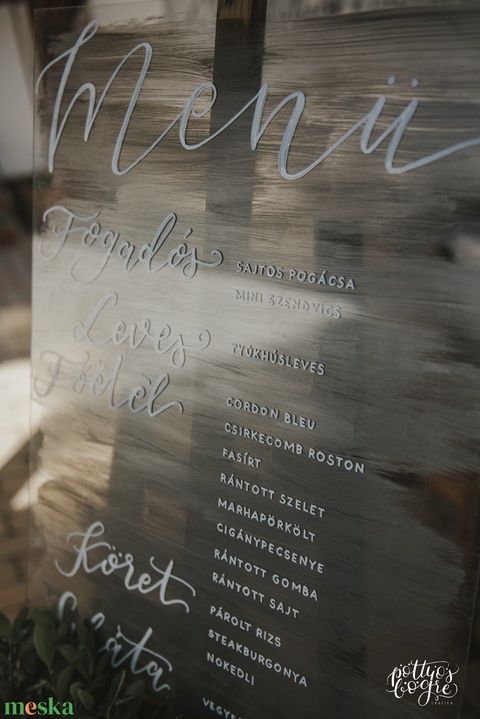 Menü
Fogadós
SAJTOS POGÁCSA
MINI SZENDVICS
Leves
TYÚKHÚSLEVES
Főétel
CORDON BLEU
CSIRKECOMB ROSTON
FASÍRT
RÁNTOTT SZELET
MARHAPÖRKÖLT
CIGÁNYPECSENYE
RÁNTOTT GOMBA
RÁNTOTT SAJT
Köret
PÁROLT RIZS
STEAKBURGONYA
NOKEDLI
Saláta
pöttyös
bögre
GRAFICA
meska